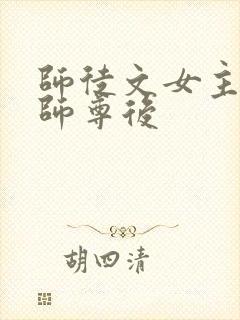 師徒文女主
師尊後
胡四清